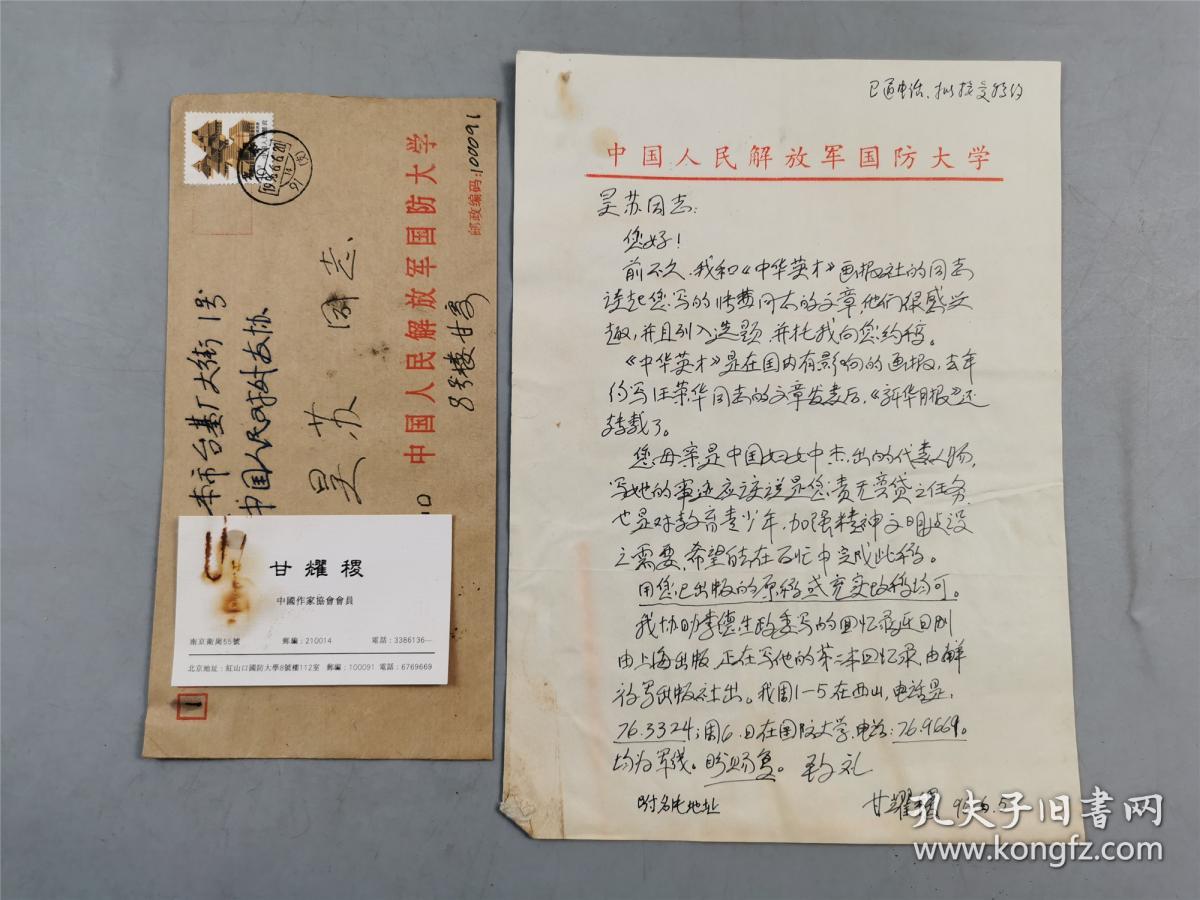 中国人民解放军国防大学
邮政编码:100091
8号楼甘寄
本市台基厂大街1号
中国人民对外友协
吴苏 同志
甘耀稷
中國作家協會會員
南京衛崗55號 郵編:210014 電話:3386136—
北京地址:紅山口國防大學8號樓112室 郵編:100091 電話:6769669
1
已通电话、拟接受特约
中国人民解放军国防大学
吴苏同志:
您好!
前不久,我和《中华英才》画报社的同志
谈起您写的帅孟奇同志的文章,他们很感兴
趣,并且列入选题,并托我向您约稿。
《中华英才》是在国内有影响的画报,去年
约写汪荣华同志的文章发表后,《新华月报》还
转载了。
您母亲是中国妇女中杰出的代表人物,
写她的事迹应该说是您责无旁贷之任务,
也是对教育青少年,加强精神文明建设
之需要,希望能在百忙中完成此稿。
用您已出版的原稿或充实改稿均可。
我协助李德生政委写的回忆录近日则
由上海出版,正在写他的第二本回忆录,由解
放军出版社出。我周1-5在西山,电话是:
76.3324;周6.日在国防大学,电话:76.9669。
均为军线。盼赐复。 致礼
附名片地址 甘耀稷 96.6.5
孔夫子旧书网
www.kongfz.com